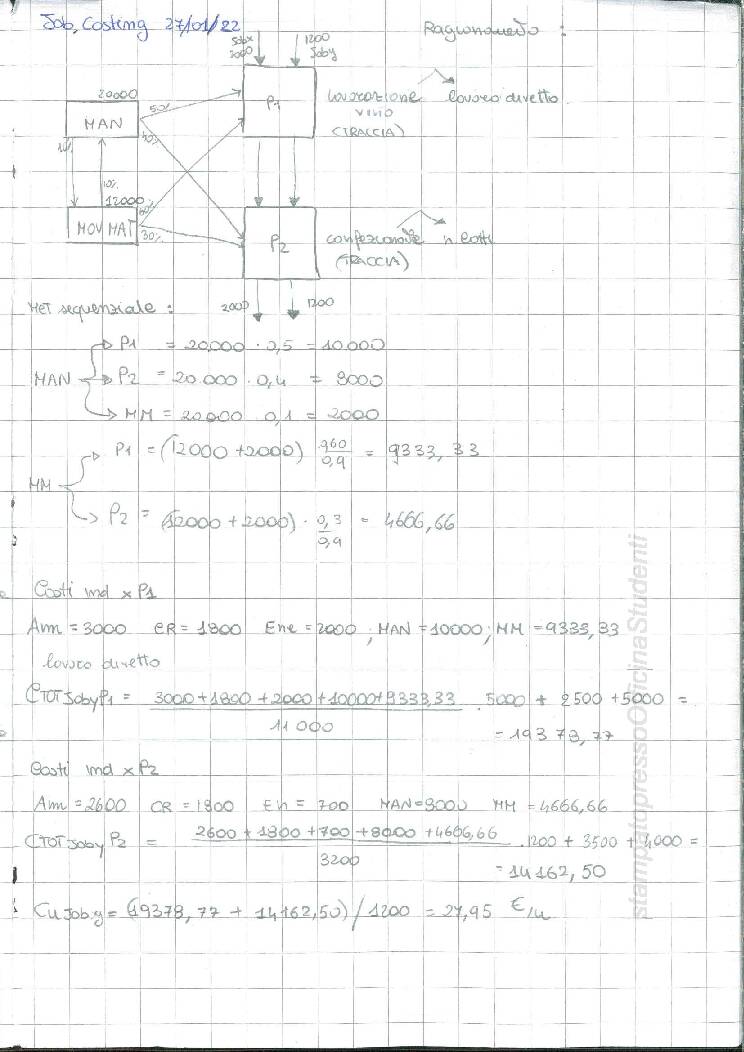 Job, Costing 27/01/22
Ragionamento :
Job x 2000
1200 Job y
20000
MAN
50%
40%
10%
P1
lavorazione lavoro diretto
VINO
(TRACCIA)
10%
12000
MOV MAT
60%
30%
P2
confezionale n Lotti
(TRACCIA)
2000 1200
MET sequenziale :
MAN
P1 = 20.000 · 0,5 = 10.000
P2 = 20.000 · 0,4 = 8000
MM = 20.000 0,1 = 2000
MM
P1 = (12000 + 2000) 0,60/0,9 = 9333,33
P2 = (12000 + 2000) · 0,3/0,9 = 4666,66
Costi ind x P1
Am = 3000 CR = 1800 Ene = 2000 ; MAN = 10000 ; MM = 9333,33
lavoro diretto
CTOT Joby P1 = 3000 + 1800 + 2000 + 10000 + 9333,33 / 11000 · 5000 + 2500 + 5000 =
= 19378,77
Costi ind x P2
Am = 2600 CR = 1800 En = 700 MAN = 8000 MM = 4666,66
CTOT Joby P2 = 2600 + 1800 + 700 + 8000 + 4666,66 / 3200 · 1200 + 3500 + 4000 =
= 14162,50
Cu Job.y = (19378,77 + 14162,50) / 1200 = 27,95 €/u
stampatopressoOfficinaStudenti